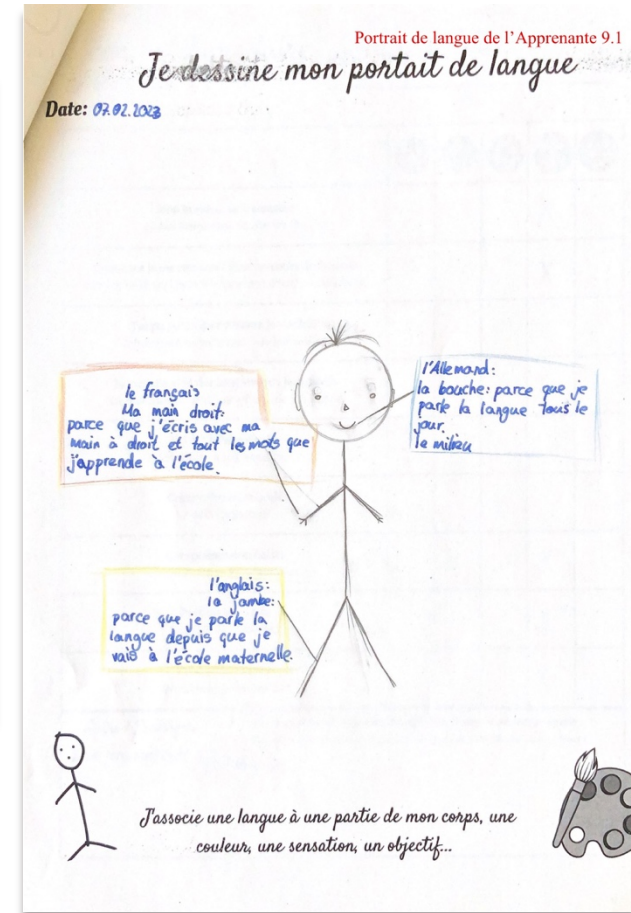 Portrait de langue de l'Apprenante 9.1
Je dessine mon portait de langue
Date: 07.02.2023
le français
Ma main droit:
parce que j'écris avec ma
main à droit et tout les mots que
j'apprende à l'école.
l'Allemand:
la bouche: parce que je
parle la langue tous le
jour.
le milieu
l'anglais:
la jambe:
parce que je parle la
langue depuis que je
vais à l'école maternelle.
J'associe une langue à une partie de mon corps, une
couleur, une sensation, un objectif...